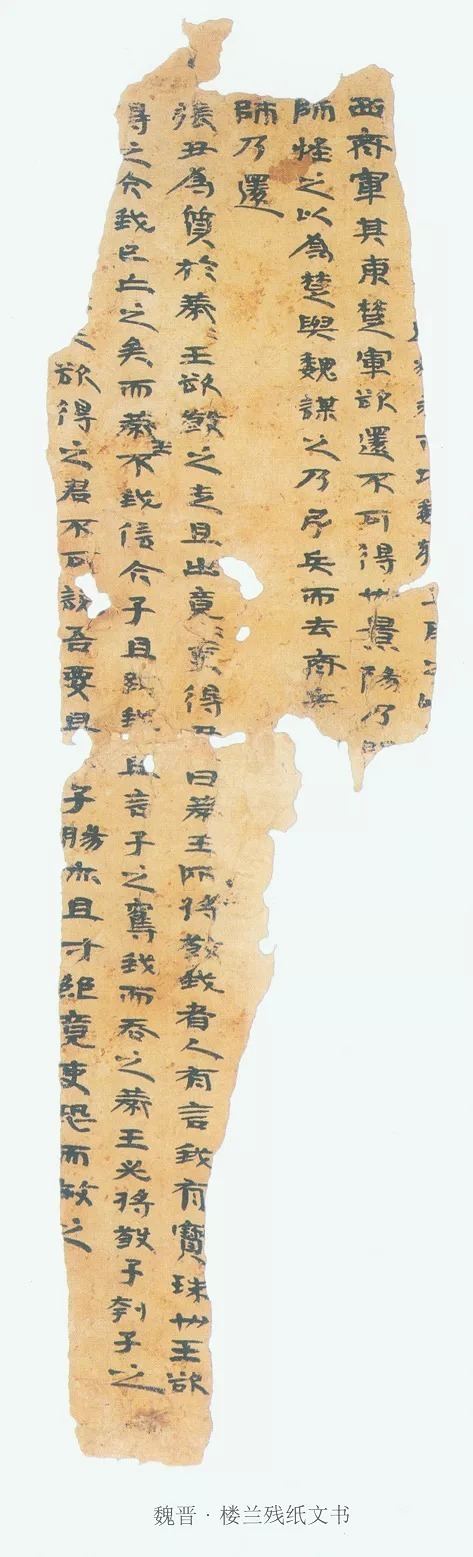 西齊軍其東楚軍欲還不可得也景陽乃
師怪之以為楚與魏謀之乃引兵而去齊兵
師乃還
張丑為質於燕王欲殺之走且出竟吏得丑曰燕王所將殺我者人有言我有寶珠也王欲
得之今我已亡之矣而燕王不我信今子且致我且言子之奪我而吞之燕王必將殺子刳子之
欲得之君不可說吾要且子腸亦且寸絕竟吏恐而赦之
魏晋·楼兰残纸文书